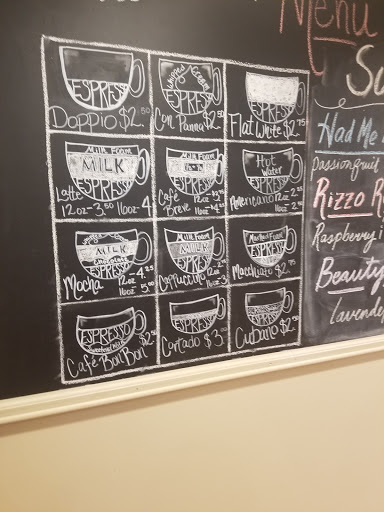 Menu
ESPRESSO
Doppio $2.50
Whipped Cream
ESPRESSO
Con Panna $2.50
ESPRESSO
Flat White $2.75
Milk Foam
MILK
ESPRESSO
Latte
12oz - 3.50 16oz - 4
Milk Foam
ESPRESSO
Café
Breve
12oz
16oz
Hot
Water
ESPRESSO
Americano
12oz
16oz
Whipped Cream
MILK
Chocolate
ESPRESSO
Mocha
12oz 4.25
16oz 5.00
Milk Foam
MILK
ESPRESSO
Cappuccino
12oz
16oz
Milk Foam
ESPRESSO
Macchiato $2.75
ESPRESSO
Café BonBon $2.50
ESPRESSO
Cortado $3.00
ESPRESSO
Cubano $2.50
Had Me
Passionfruit
Rizzo
Raspberry
Beauty
lavender